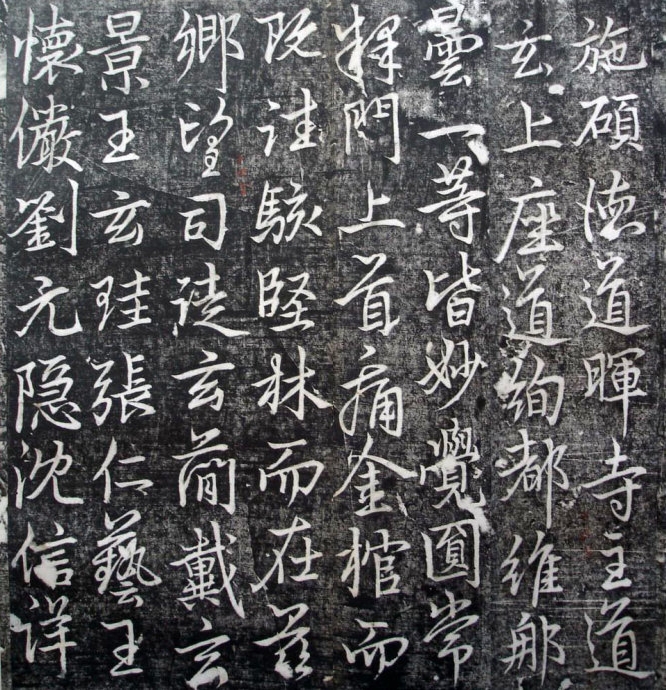 施碩德道暉寺主道
玄上座道絢都維那
曇一等皆妙覺圓常
釋門上首痛金棺而
既註駭堅林而在茲
鄉望司徒玄簡戴玄
景王玄珪張仁藝王
懷儼劉元隱沈信詳